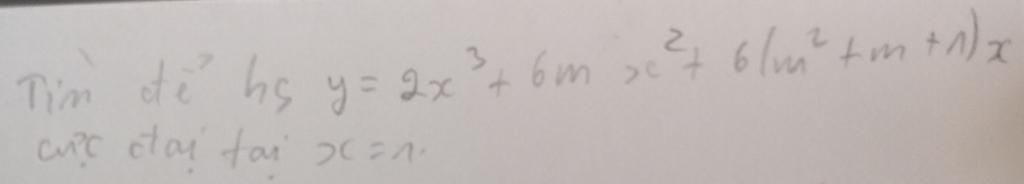 Tìm để hs y = 2x³ + 6m x² + 6(m² + m + 1)x
cực đại tại x = 1.